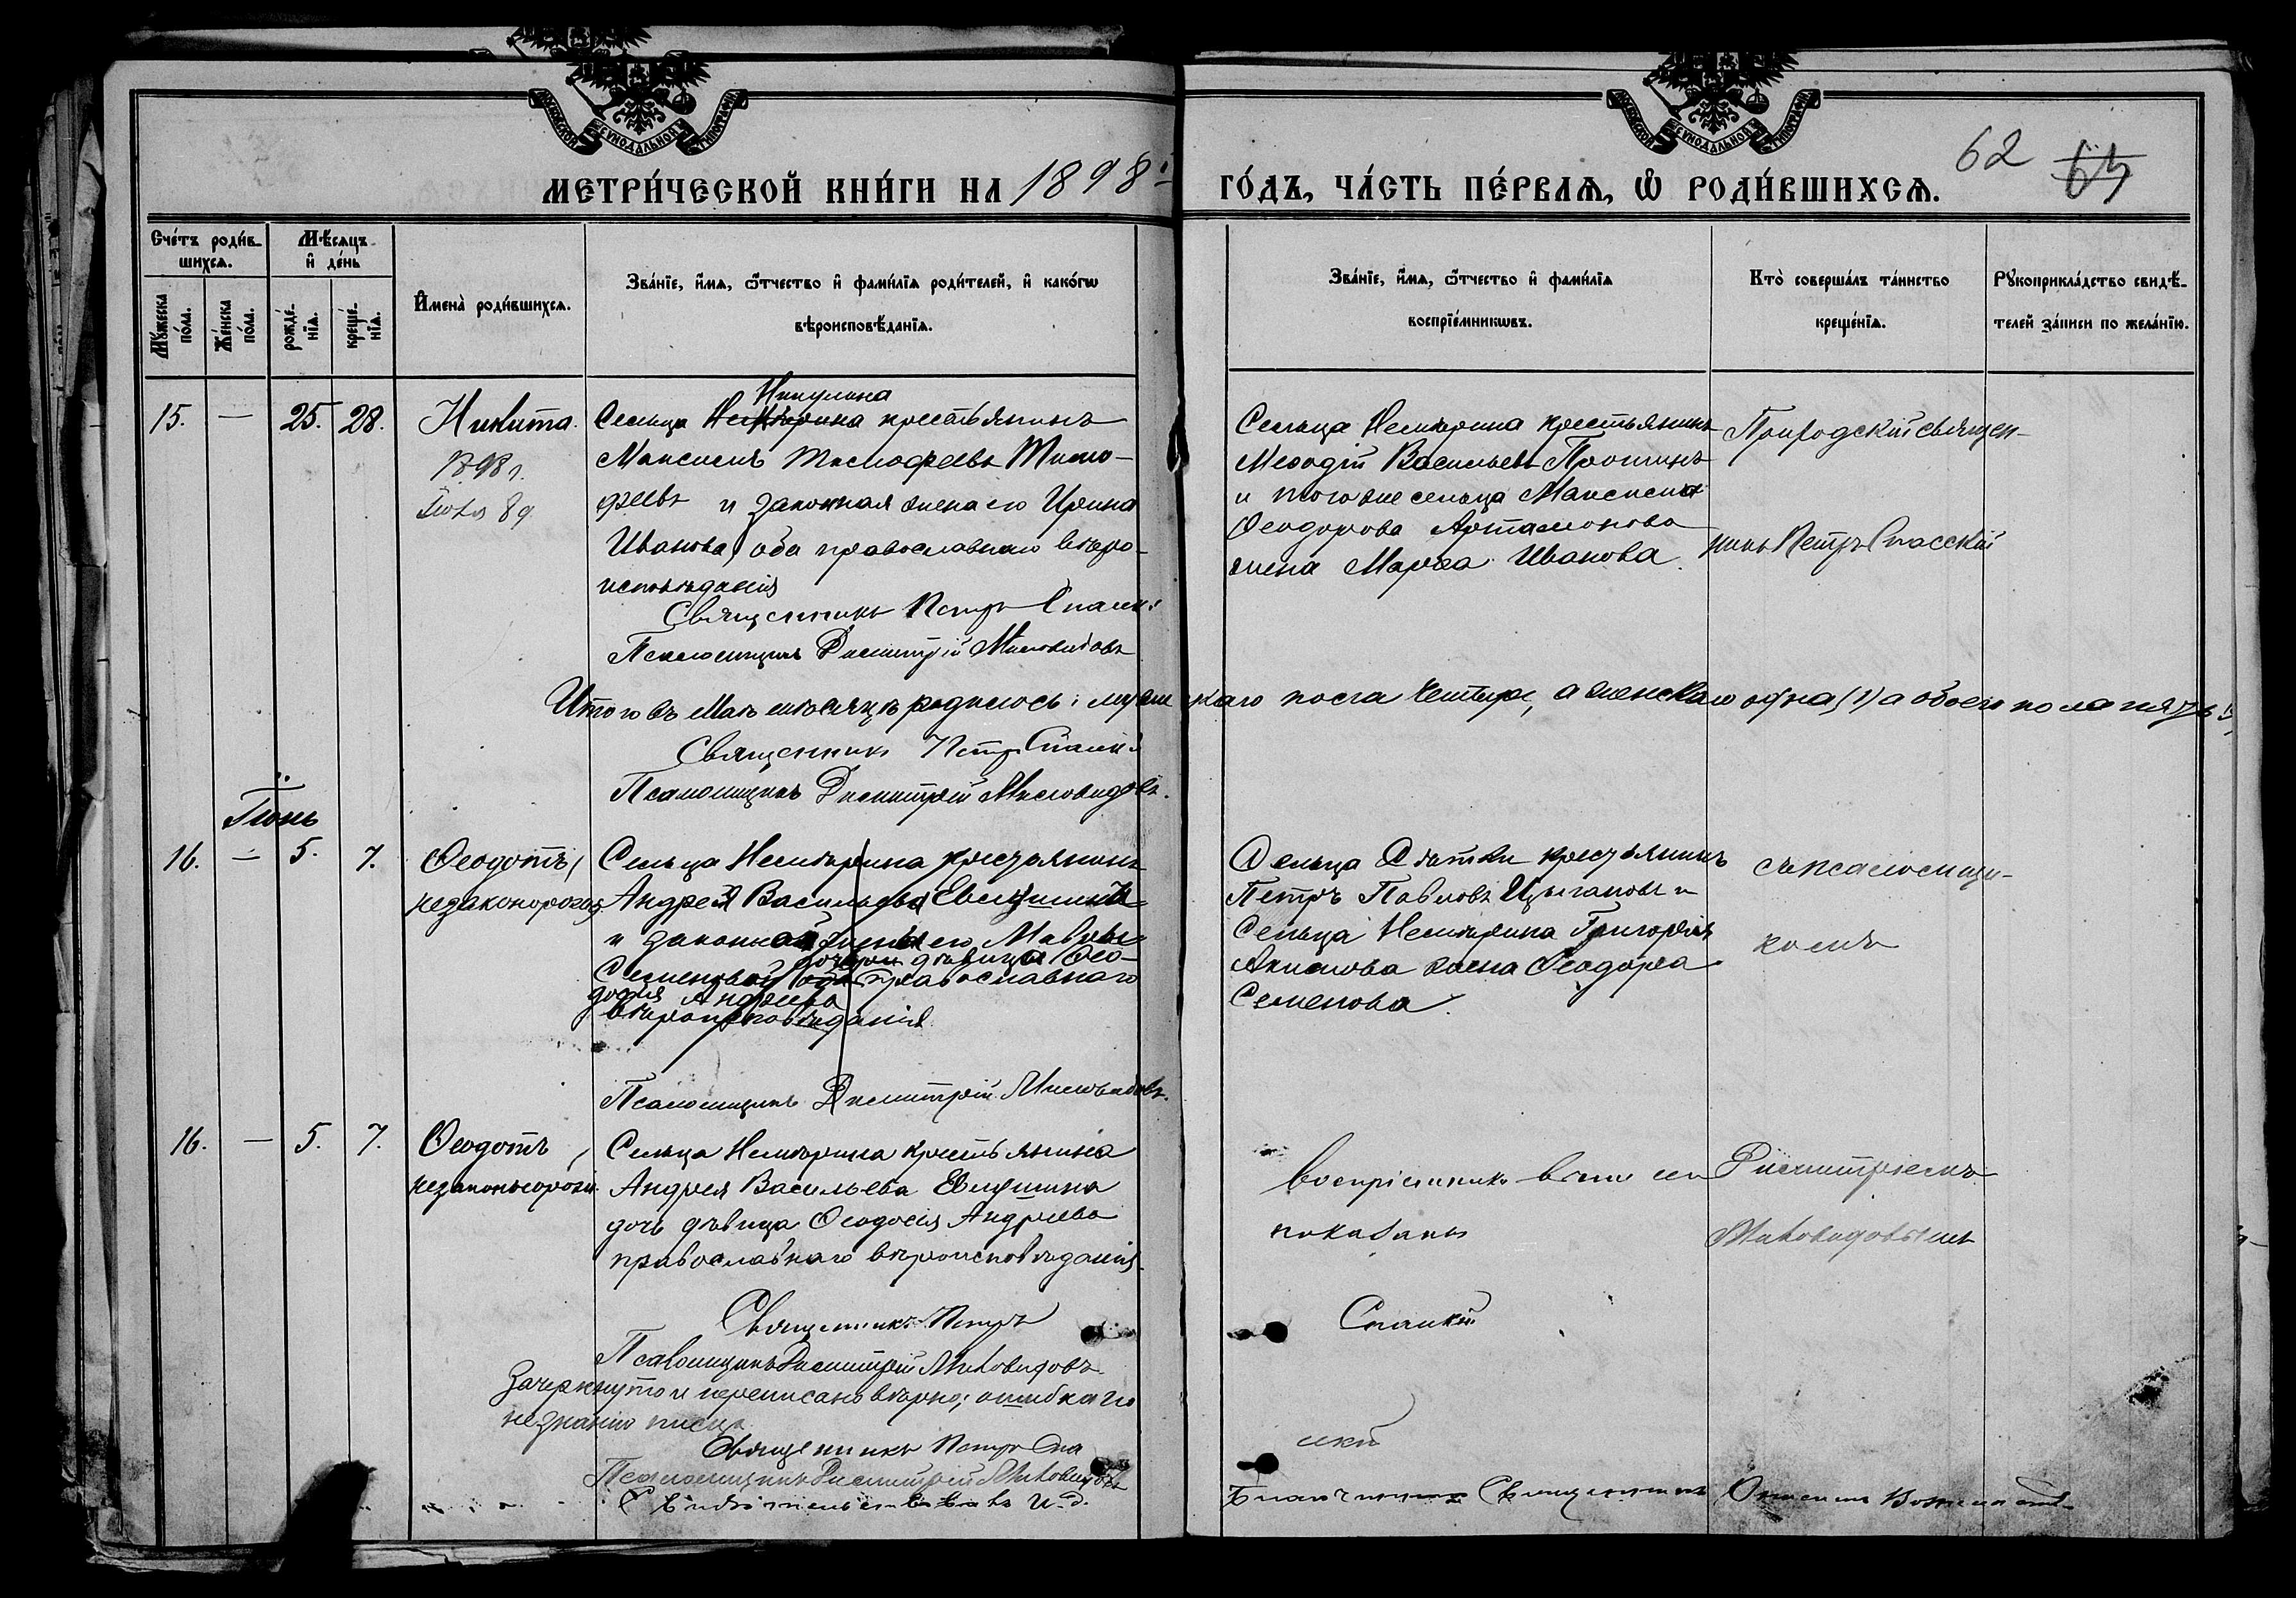 МЕТРИ́ЧЕСКОЙ КНИ́ГИ НА 1898й
ГО́ДЪ, ЧА́СТЬ ПЕ́РВАѦ, Ѡ҆ РОДИ́ВШИХСѦ.
62
Счетъ роди́в-
шихсѧ.
Мꙋ́жеска по́ла.
Же́нска по́ла.
Мѣ́сѧцъ
и҆ де́нь
рожде́-
нїѧ.
креще́-
нїѧ.
И҆мена̀ роди́вшихсѧ.
Зва́нїе, и҆́мѧ, ѻ҆́тчество и҆ фами́лїѧ роди́телей, и҆ како́гѡ
вѣроисповѣ́данїѧ.
Зва́нїе, и҆́мѧ, ѻ҆́тчество и҆ фами́лїѧ
воспрїе́мникѡвъ.
Кто̀ соверша́лъ та́инство
креще́нїѧ.
Рꙋкоприкла́дство свидѣ́-
телей за́писи по жела́нїю.
15. — 25. 28.
Никита.
1898 г.
Никулина
Сельца крестьянинъ
Максимъ Тимофеевъ Тимо-
феевъ и законная жена его Ирина
Иванова, оба православнаго вѣро-
исповѣданія
Священникъ Петръ Спасскій
Псаломщикъ Димитрій Миловидовъ
Сельца Немѣрина крестьянинъ
Меѳодій Васильевъ Прошинъ
и того же сельца Максима
Ѳеодорова Артамонова
жена Марѳа Иванова.
Приходскій священ-
никъ Петръ Спасскій
Итого въ Маѣ мѣсяцѣ родилось: мужескаго пола четыре, а женскаго одна (1) а обоего пола пять
Священникъ Петръ Спасскій
Псаломщикъ Димитрій Миловидовъ.
Іюнь
16. — 5. 7.
Ѳеодотъ,
незаконорожд.
Сельца Немѣрина крестьянинъ
Андрея Васильева
и законной жены его Мавры
дочери дѣвица Ѳео-
Семеновой православнаго
досія Андреева
вѣроисповѣданія
Псаломщикъ Димитрій Миловидовъ.
Сельца крестьянинъ
Петръ Павловъ Цыгановъ и
Сельца Немѣрина Григорія
Акимова жена Ѳеодора
Семенова.
съ псаломщи-
комъ
16. — 5. 7.
Ѳеодотъ,
незаконнорожд.
Сельца Немѣрина крестьянина
Андрея Васильева
дочь дѣвица Ѳеодосія Андреева
православнаго вѣроисповѣданія.
воспріемники выше
показаны
Димитріемъ
Миловидовымъ
Священникъ Петръ Спасскій
Псаломщикъ Димитрій Миловидовъ
Зачеркнуто и переписано вѣрно; ошибка по
незнанію писца.
Священникъ Петръ Спасскій
Псаломщикъ Димитрій Миловидовъ
Свидѣтельствовалъ И. д.
Благочиннаго Священникъ